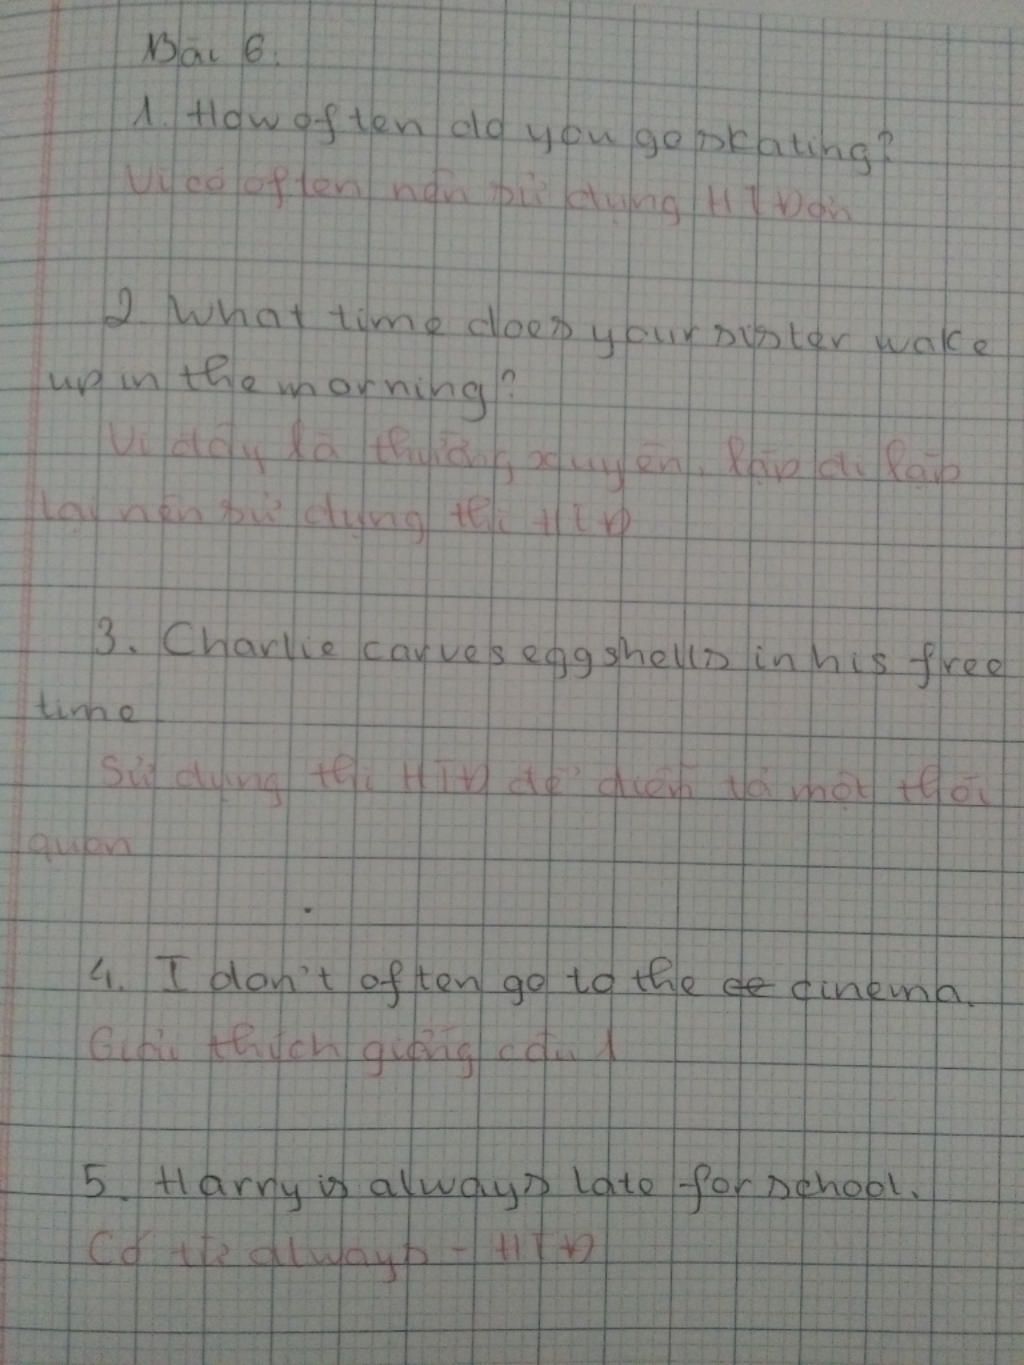 Bài 6.
1. How often do you go skating?
Vì có often nên sử dụng HTĐơn
2 What time does your sister wake
up in the morning?
Vì đây là thường xuyên, lặp đi lặp
lại nên sử dụng thì HTĐ
3. Charlie carves eggshells in his free
time
Sử dụng thì HTĐ để diễn tả một thói
quen
4. I don't often go to the ce cinema.
Giải thích giống câu 1
5. Harry is always late for school.
Có từ always - HTĐ